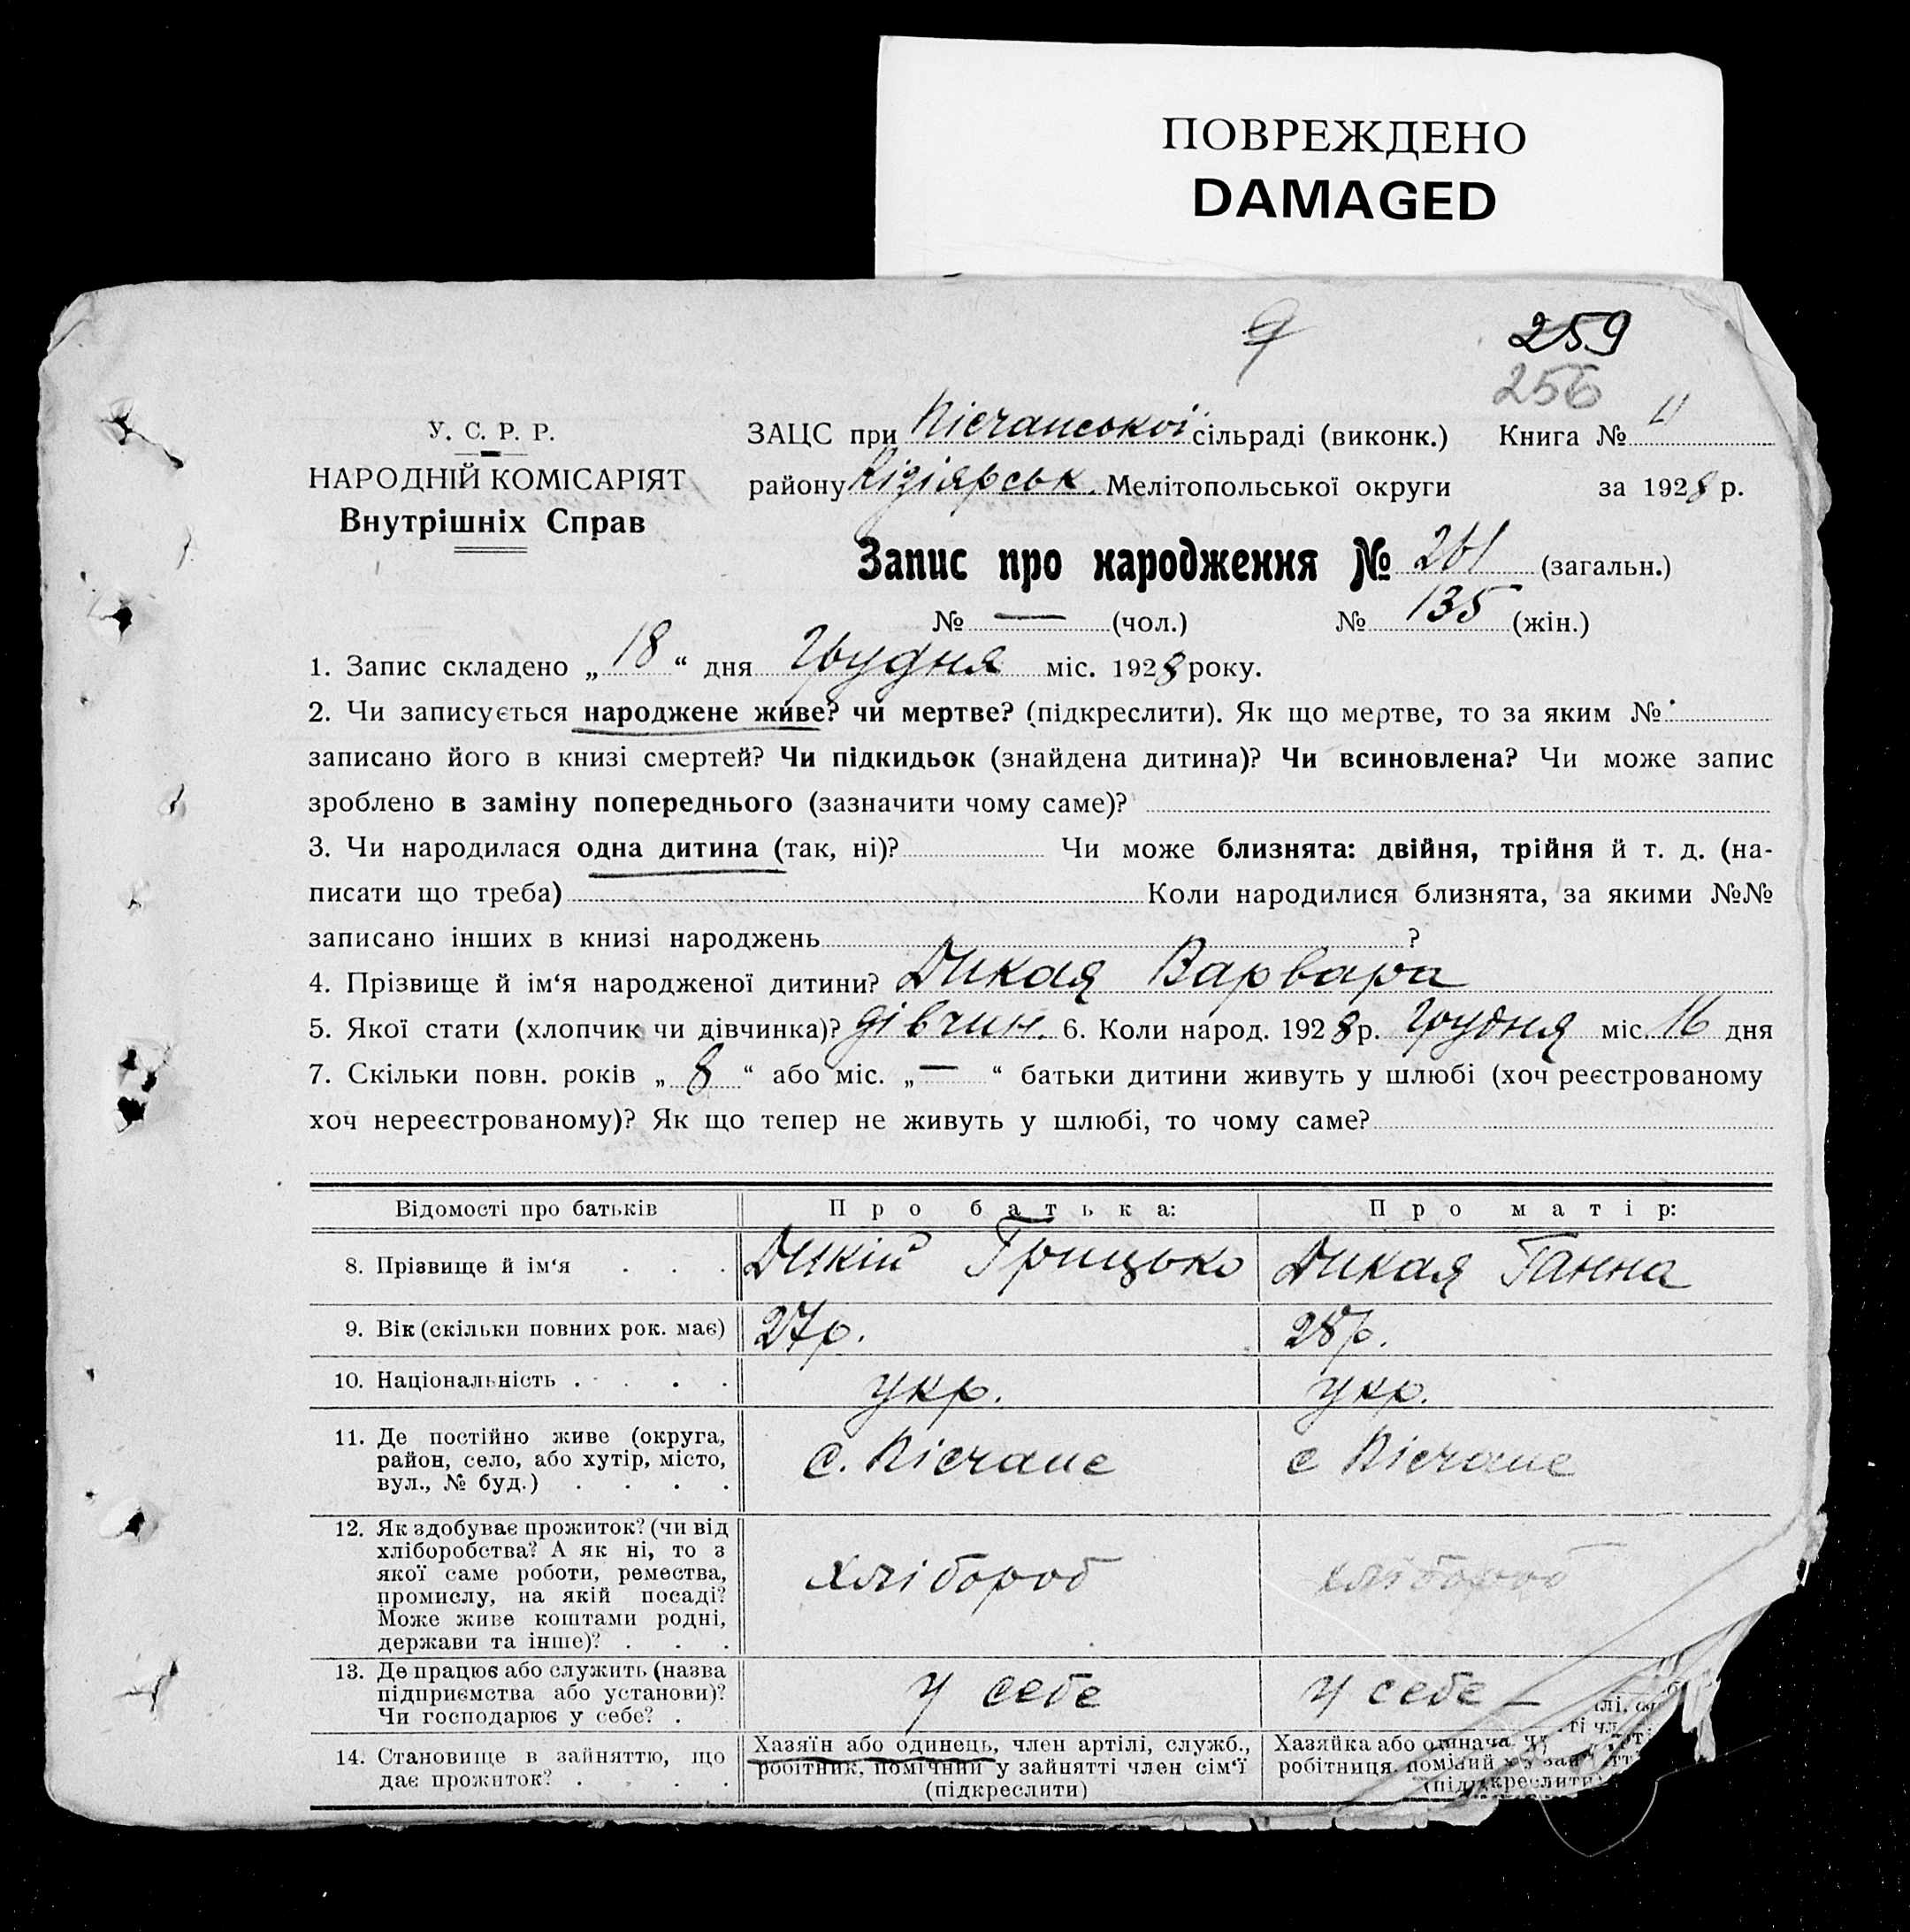 ПОВРЕЖДЕНО
DAMAGED
259
256
У. С. Р. Р.
НАРОДНІЙ КОМІСАРІЯТ
Внутрішніх Справ
ЗАЦС при Пісчанської сільраді (виконк.) Книга № 4
району Кізіярськ. Мелітопольської округи за 1928 р.
Запис про народження № 261 (загальн.)
№ — (чол.) № 135 (жін.)
1. Запис складено „ 18 “ дня Грудня міс. 1928 року.
2. Чи записується народжене живе? чи мертве? (підкреслити). Як що мертве, то за яким №
записано його в книзі смертей? Чи підкидьок (знайдена дитина)? Чи всиновлена? Чи може запис
зроблено в заміну попереднього (зазначити чому саме)?
3. Чи народилася одна дитина (так, ні)? Чи може близнята: двійня, трійня й т. д. (на-
писати що треба) Коли народилися близнята, за якими №№
записано інших в книзі народжень ?
4. Прізвище й ім‘я народженої дитини? Дикая Варвара
5. Якої стати (хлопчик чи дівчинка)? дівчин. 6. Коли народ. 1928 р. Грудня міс. 16 дня
7. Скільки повн. років „ 8 “ або міс. „ — “ батьки дитини живуть у шлюбі (хоч реєстрованому
хоч нереєстрованому)? Як що тепер не живуть у шлюбі, то чому саме?
Відомості про батьків Про батька: Про матір:
8. Прізвище й ім‘я . . . Дикій Грицько Дикая Ганна
9. Вік (скільки повних рок. має) 27 р. 28 р.
10. Національність . . . . укр. укр.
11. Де постійно живе (округа,
район, село, або хутір, місто,
вул., № буд.) . . . .
с. Пісчане с Пісчане
12. Як здобуває прожиток? (чи від
хліборобства? А як ні, то з
якої саме роботи, ремества,
промислу, на якій посаді?
Може живе коштами родні,
держави та інше)? . . .
хлібороб хлібороб
13. Де працює або служить (назва
підприємства або установи)?
Чи господарює у себе? .
у себе у себе —
14. Становище в зайняттю, що
дає прожиток? . . .
Хазяїн або одинець, член артілі, служб.,
робітник, помічний у зайнятті член сім‘ї
(підкреслити)
Хазяйка або одинача
робітниця